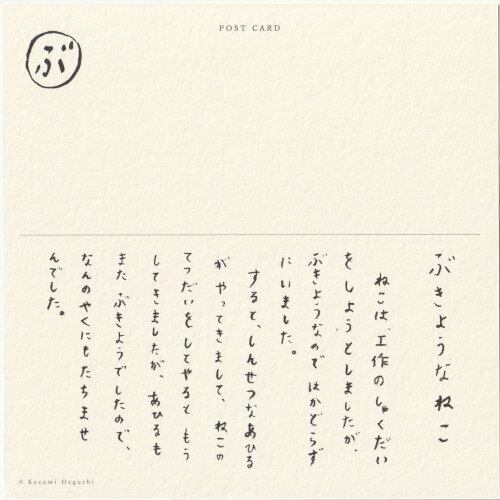 POST CARD
ぶ
ぶきような ねこ
ねこは、工作の しゅくだい
を しようとしましたが、
ぶきようなので はかどらず
に いました。
すると、しんせつな あひる
が やってきまして、ねこの
てつだいを してやると もう
してきましたが、あひるも
また ぶきようでしたので、
なんの やくにも たちませ
んでした。
© Kazumi Deguchi